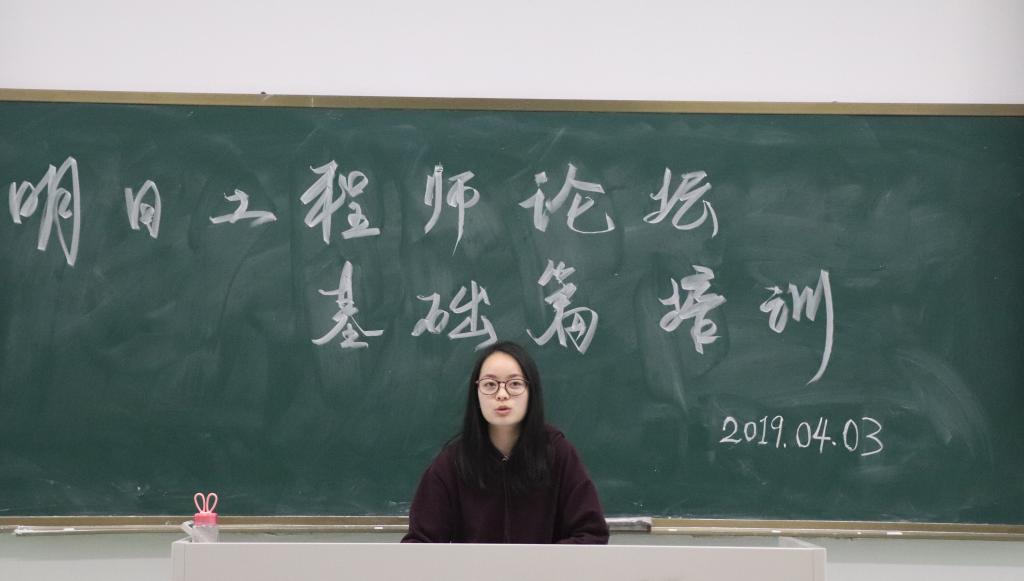 明日工程师论坛
基础篇培训
2019.04.03